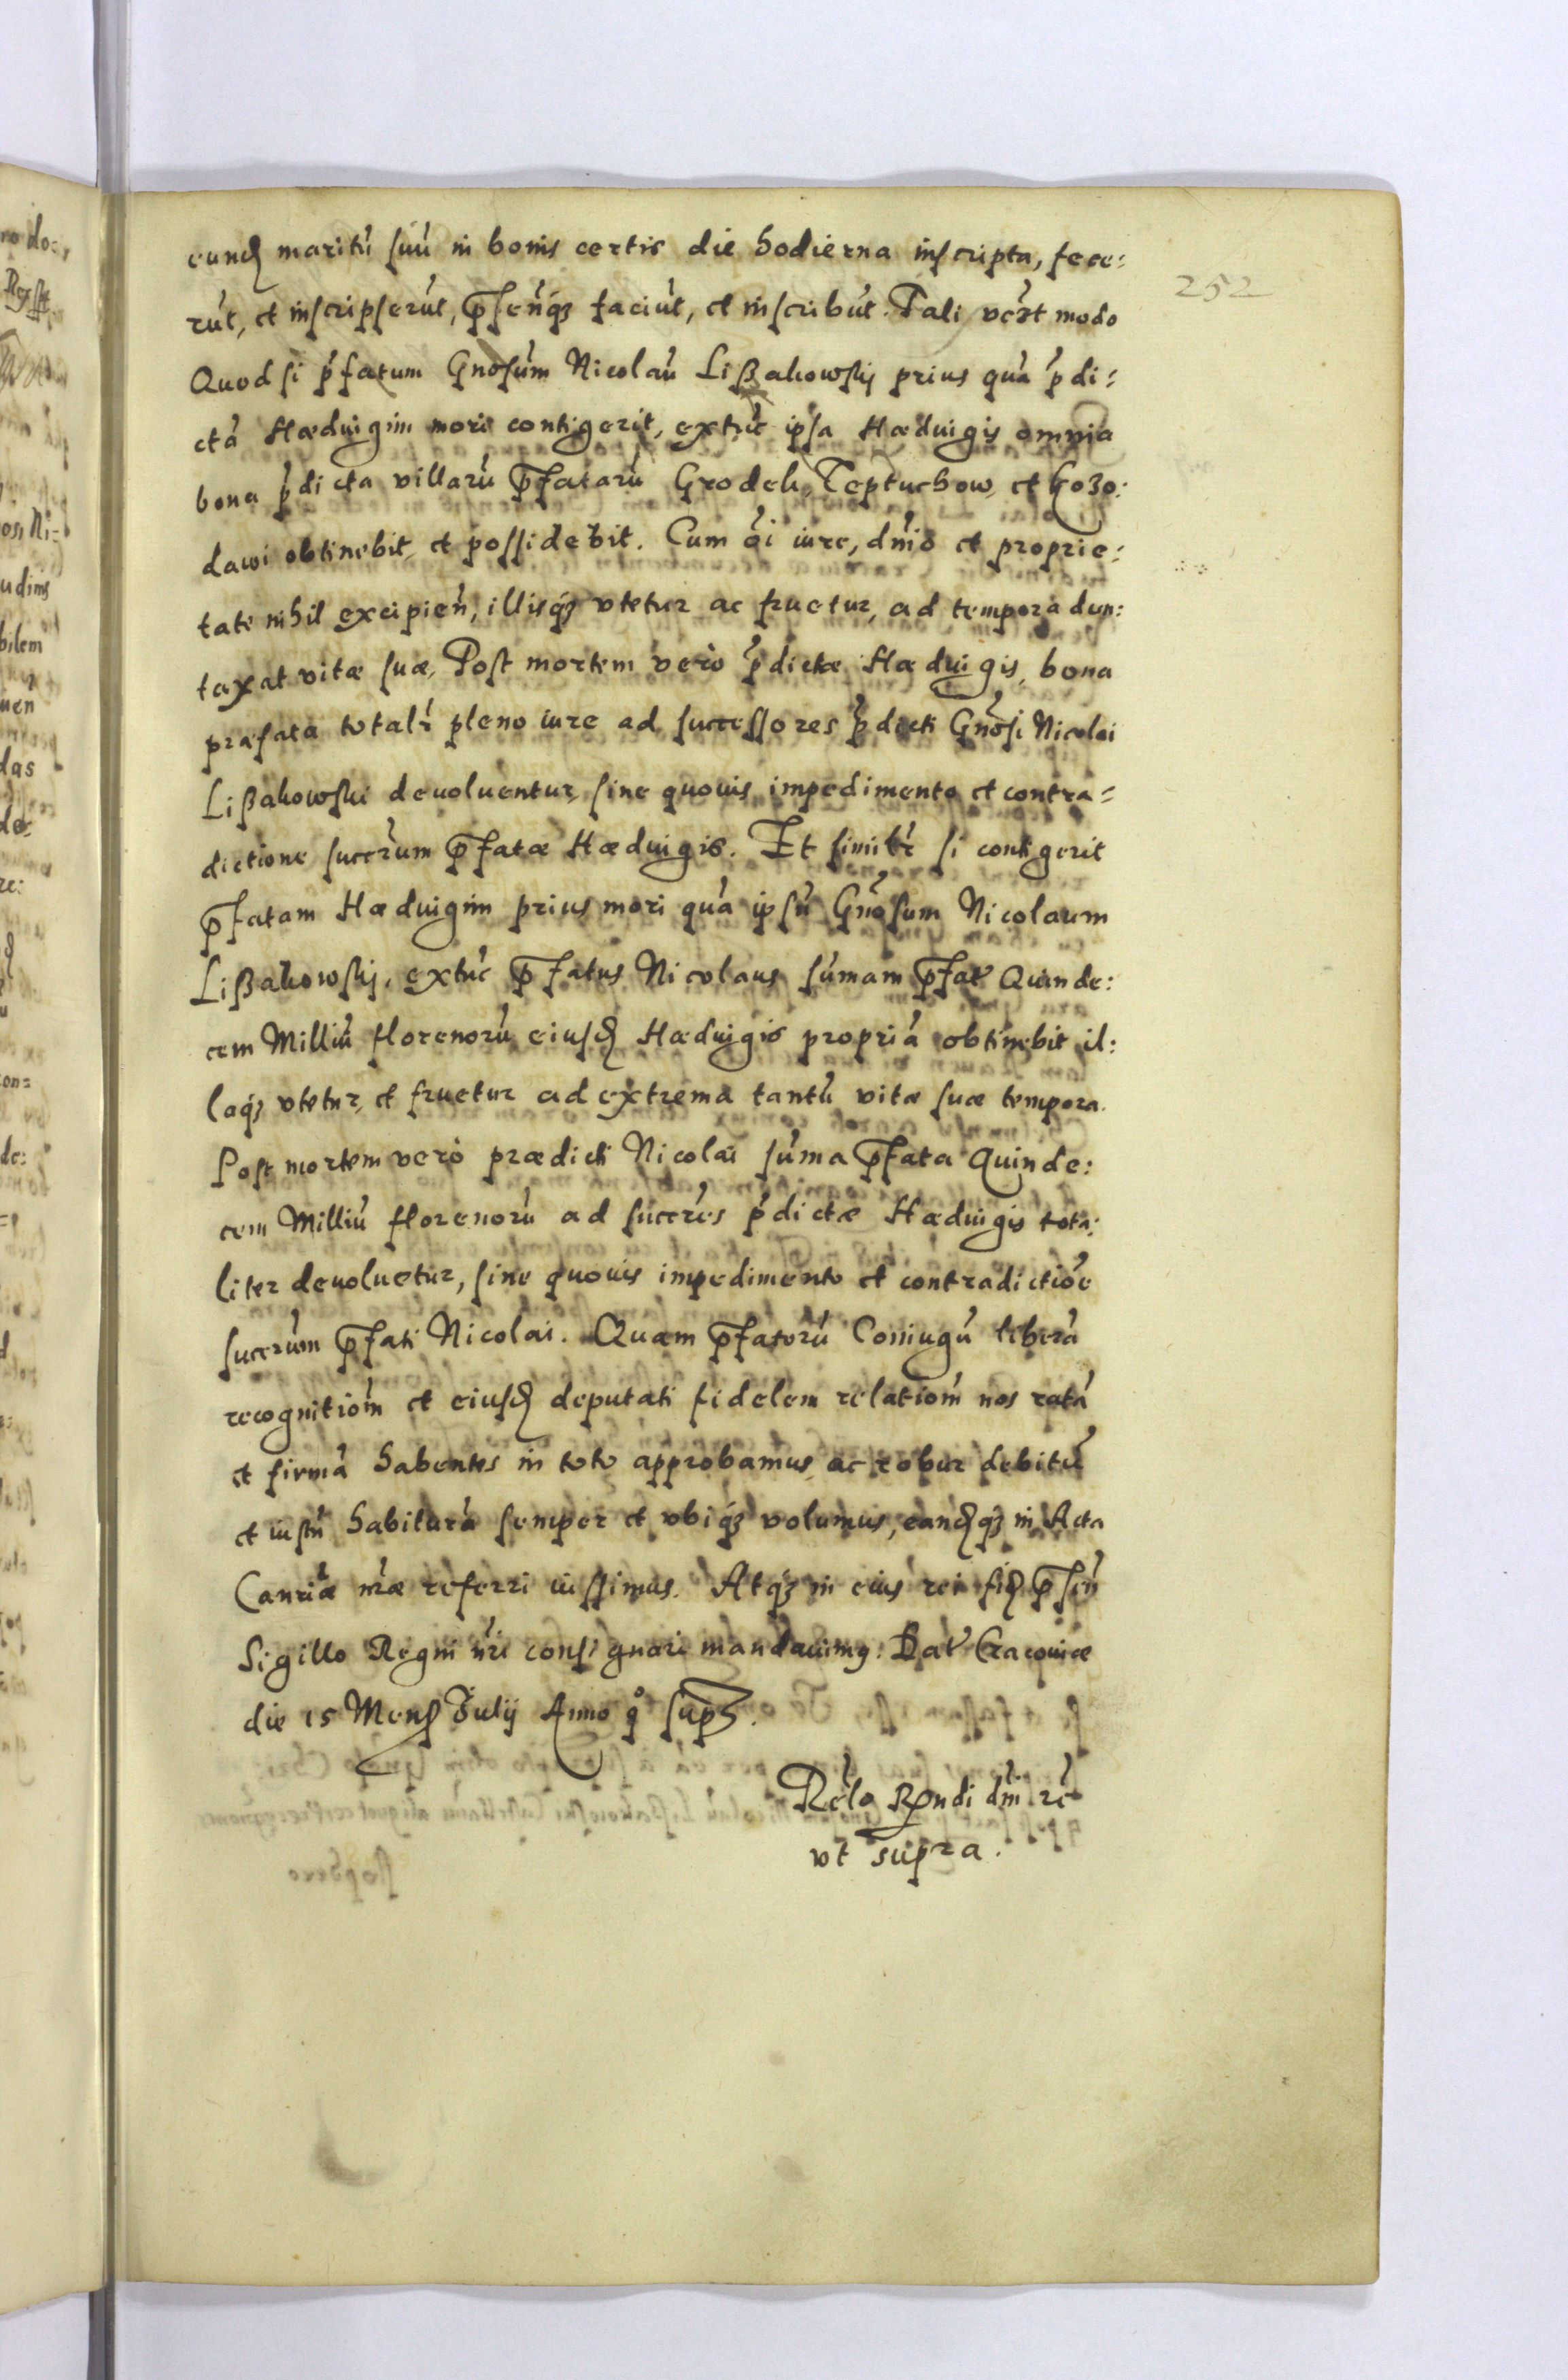 252
eund maritū suū in bonis certis die hodierna inscripta, fece:
rūt, et inscripserūt, p̄senq3 faciūt, et inscribūt. Tali vert modo
Quod si p̄fatum Gnosum Nicolaū Lißakowskj prius quā p̄di:
ctā Hæduigim mori contigerit, extūc ipsa Hæduigis omnia
bona p̄dicta villarū p̄fatarū Grodek, Teptuchow, et Ho30:
dawi obtinebit et possidebit. Cum oi iure, dnio et proprie:
tate nihil excipien, illisq3 vtetur ac fruetur, ad tempora dun:
taxat vitæ suæ, Post mortem verò p̄dictæ Hæduigis, bona
præfata totalr pleno iure ad successores p̄dicti Gnosi Nicolai
Lißakowski deuoluentur, sine quouis impedimento et contra:
dictione succrum p̄fatæ Hæduigis. Et similr si contigerit
p̄fatam Hæduigim prius mori quā ipsū Gnosum Nicolaum
Lißakowskj, extūc p̄fatus Nicolaus sūmam p̄fat Quinde:
cem Milliū florenorū eiusd Hæduigis propriā obtinebit il:
laq3 vtetur, et fruetur ad extrema tantū vitæ suæ tempora.
Post mortem verò prædicti Nicolai sūma p̄fata Quinde:
cem Milliū florenorū ad succres p̄dictæ Hæduigis tota:
liter deuoluetur, sine quouis impedimento et contradictioē
succrum p̄fati Nicolai. Quam p̄fatorū Coniugū liberā
recognitiom et eiusd deputati fidelem relatiom nos ratā
et firmā habentes in toto approbamus, ac robur debitū
et iustū habiturā semper et vbiq3 volumus, eandq3 in Acta
Cancriæ nræ referri iussimus. Atq3 in eius rei fid p̄sen
Sigillo Regni nri consignari mandauimg: Dat Cracouiæ
die 15 Mens Julij Anno qo sup.
Relo Rndi dni rc
vt supra.